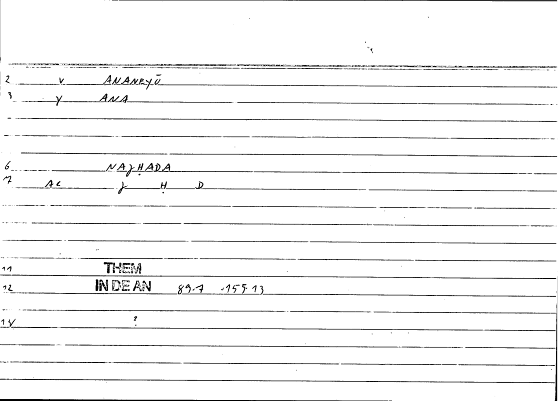 2 v ANANKYŪ
3 y ANA
6 NAƷḤADA
7 AC Ʒ Ḥ D
11 THEM
12 IN DE AN 89.7 -155.13
14 ?